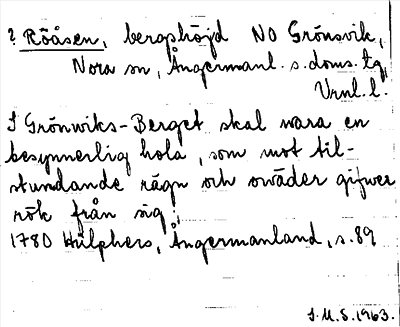 ? Röåsen, bergshöjd NO Grönsvik,
Nora sn, Ångermanl. s. doms. tg,
Vrnl. l.
I Grönwiks-Berget skal wara en
besynnerlig hola, som mot til-
stundande rägn och owäder gifwer
rök från sig.
1780 Hülphers, Ångermanland, s. 89
I.M.S. 1963.